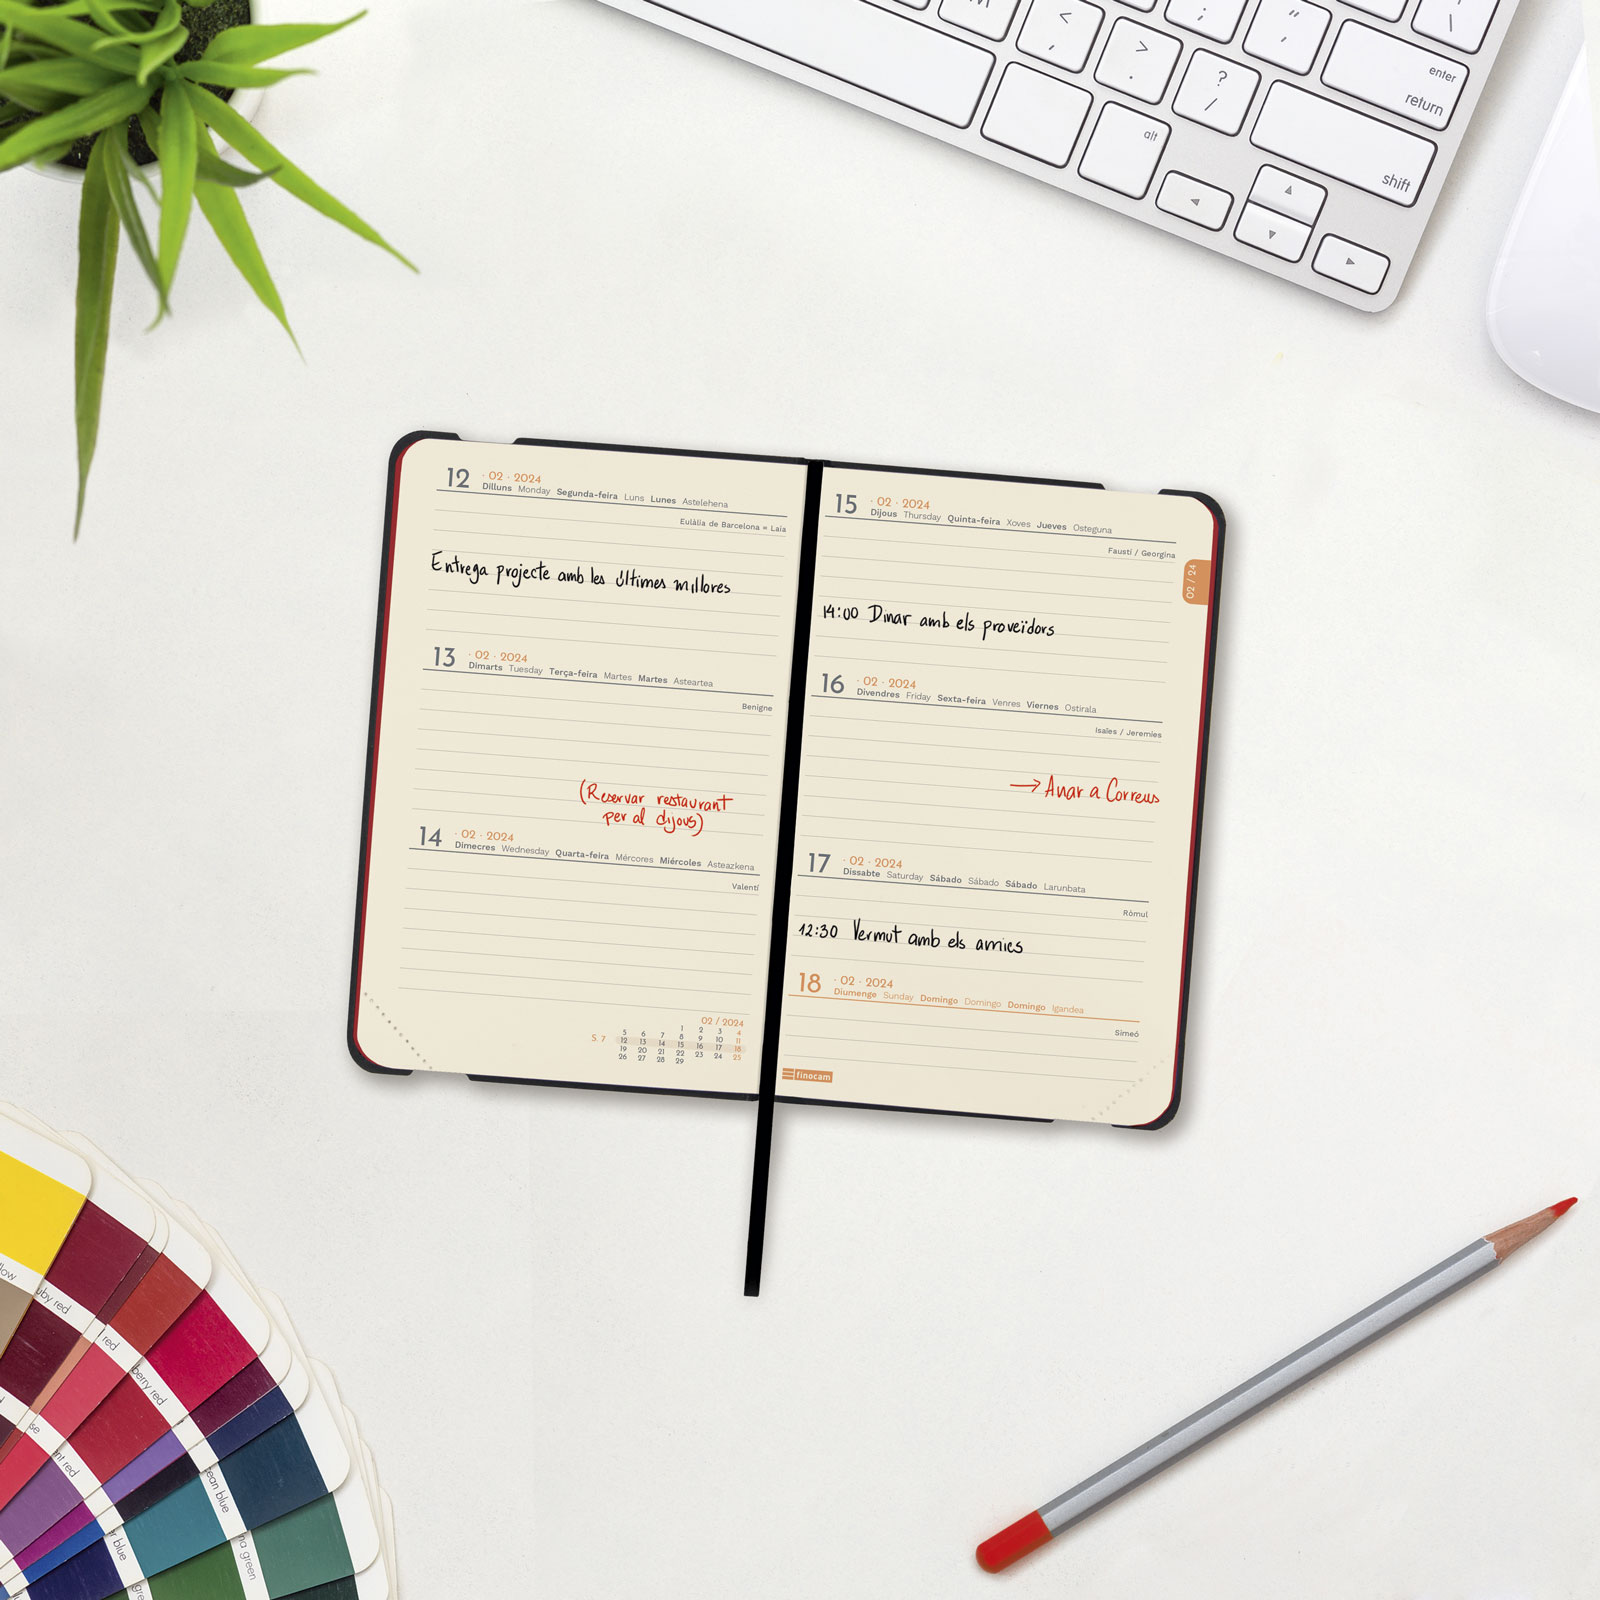 12 · 02 · 2024
Dilluns Monday Segunda-feira Luns Lunes Astelehena
Eulàlia de Barcelona = Laia
Entrega projecte amb les últimes millores
13 · 02 · 2024
Dimarts Tuesday Terça-feira Martes Martes Asteartea
Benigne
(Reservar restaurant
per al dijous)
14 · 02 · 2024
Dimecres Wednesday Quarta-feira Mércores Miércoles Asteazkena
Valentí
02 / 2024
1 2 3 4
5 6 7 8 9 10 11
S. 7 12 13 14 15 16 17 18
19 20 21 22 23 24 25
26 27 28 29
15 · 02 · 2024
Dijous Thursday Quinta-feira Xoves Jueves Osteguna
Faustí / Georgina
02 / 24
14:00 Dinar amb els proveïdors
16 · 02 · 2024
Divendres Friday Sexta-feira Venres Viernes Ostirala
Isaïes / Jeremies
→ Anar a Correus
17 · 02 · 2024
Dissabte Saturday Sábado Sábado Sábado Larunbata
Ròmul
12:30 Vermut amb els amics
18 · 02 · 2024
Diumenge Sunday Domingo Domingo Domingo Igandea
Simeó
finocam
M
< ,
> .
? /
: ;
" '
| \
enter
return
alt
shift
◄
▲
▼
►
low
uby red
red
berry red
se
nt red
ean blue
r blue
na green
gre